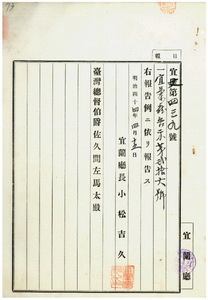 日報
宜庶第四三九號
一宜蘭廳告示第貳拾六號
右報告例ニ依リ報告ス
明治四十四年四月十五日
宜蘭廳長 小松吉久
臺灣總督伯爵佐久間左馬太殿
宜蘭廳